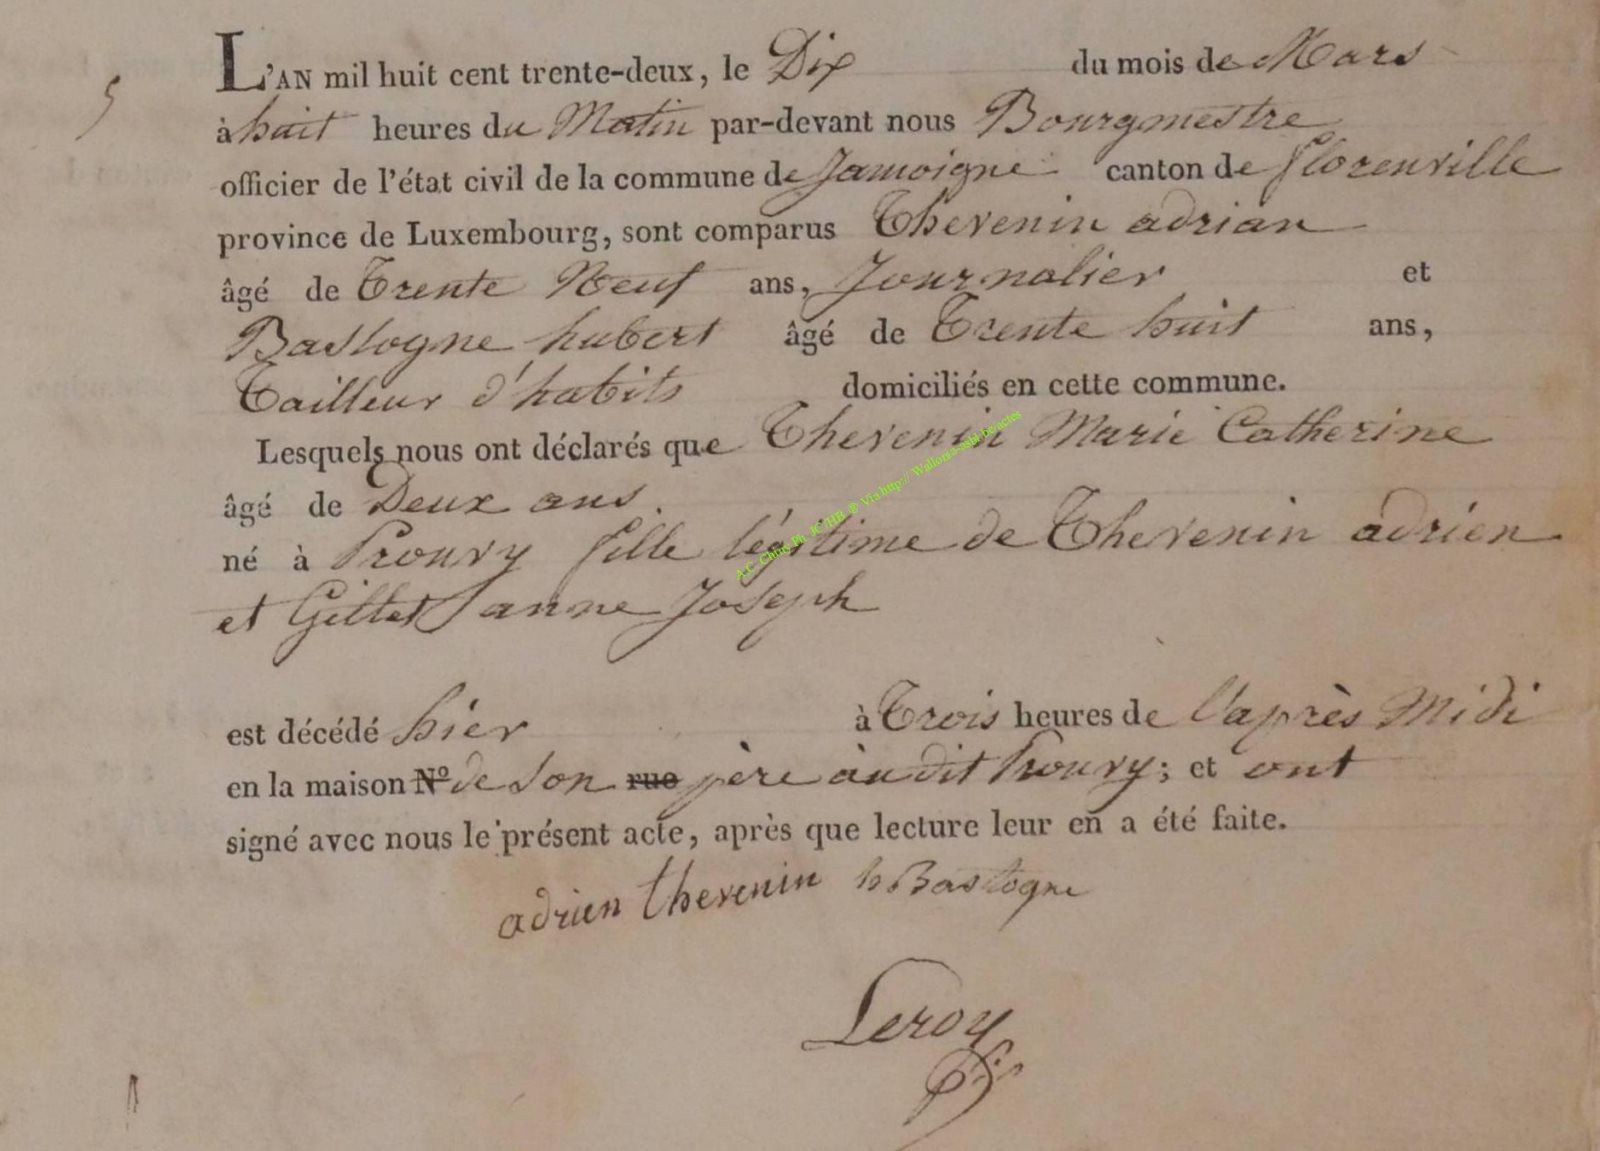 5
L'AN mil huit cent trente-deux, le Dix du mois de Mars
à huit heures du Matin par-devant nous Bourgmestre
officier de l'état civil de la commune de Jamoigne canton de florenville
province de Luxembourg, sont comparus Thevenin adrian
âgé de Trente Neuf ans, Journalier et
Bastogne hubert âgé de Trente huit ans,
Tailleur d'habits domiciliés en cette commune.
Lesquels nous ont déclarés que Thevenin Marie Catherine
âgé de Deux ans.
né à Prouvy fille légitime de Thevenin adrien
et Gillet anne Joseph
est décédé hier à Trois heures de l'après Midi
en la maison N° de son rue père audit Prouvy; et ont
signé avec nous le présent acte, après que lecture leur en a été faite.
adrien thevenin h Bastogne
Leroy
A.C. Chiny Ph JC HB @ Via http:// Wallonia-asbl.be/actes